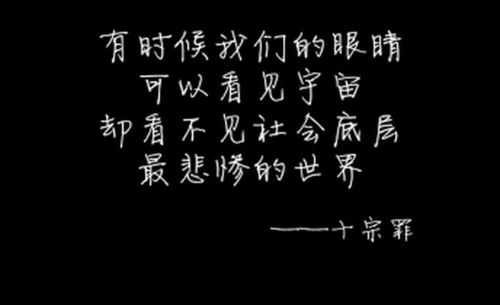 有时候我们的眼睛
可以看见宇宙
却看不见社会底层
最悲惨的世界
——十宗罪